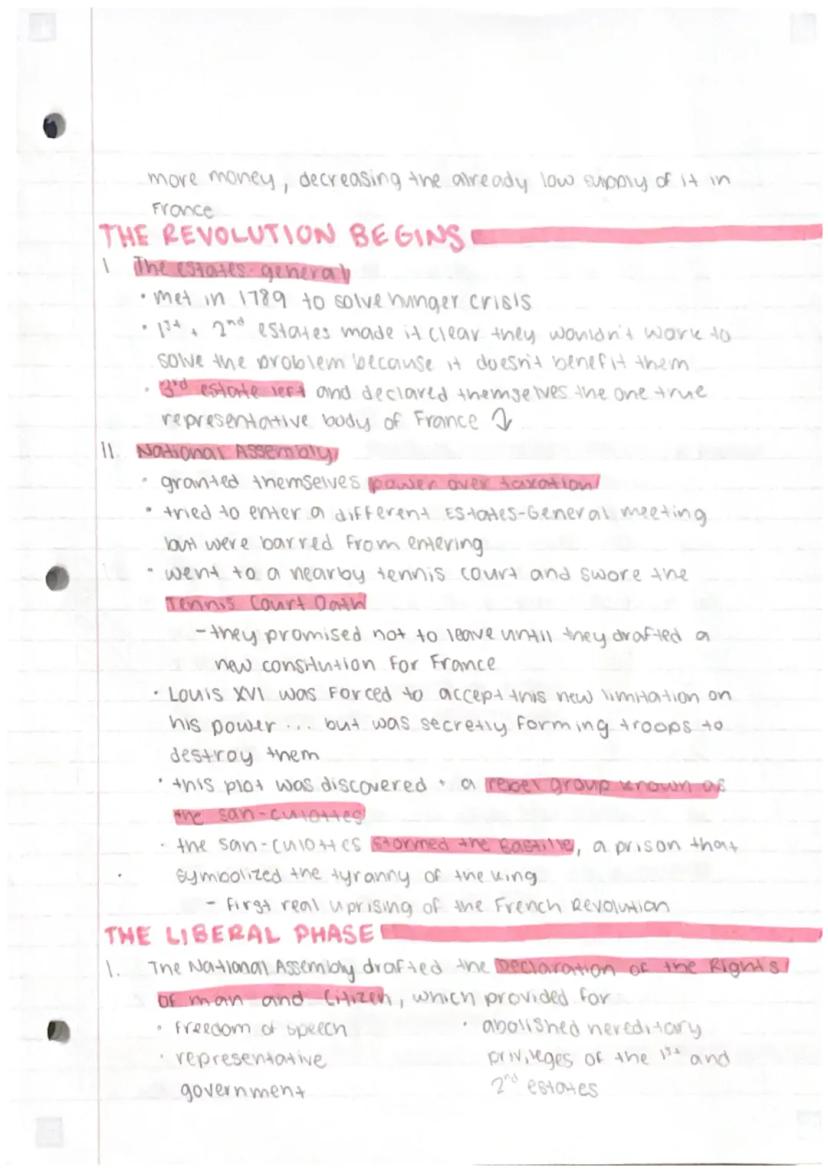 more money, decreasing the already low supply of it in
France
THE REVOLUTION BEGINS
I. The estates-general
• met in 1789 to solve hunger crisis
• 1st + 2nd estates made it clear they wouldn't work to
solve the problem because it doesn't benefit them
• 3rd estate left and declared themselves the one true
representative body of France ↓
II. National Assembly
• granted themselves power over taxation
• tried to enter a different Estates-General meeting
but were barred from entering
• went to a nearby tennis court and swore the
Tennis Court Oath
- they promised not to leave until they drafted a
new constitution for France
• Louis XVI was forced to accept this new limitation on
his power ... but was secretly forming troops to
destroy them
• this plot was discovered + a rebel group known as
the san-culottes
• the san-culottes stormed the Bastille, a prison that
symbolized the tyranny of the king
- first real uprising of the French Revolution
THE LIBERAL PHASE
I. The National Assembly drafted the Declaration of the Rights
of man and Citizen, which provided for
• freedom of speech
• representative
government
• abolished hereditary
privileges of the 1st and
2nd estates